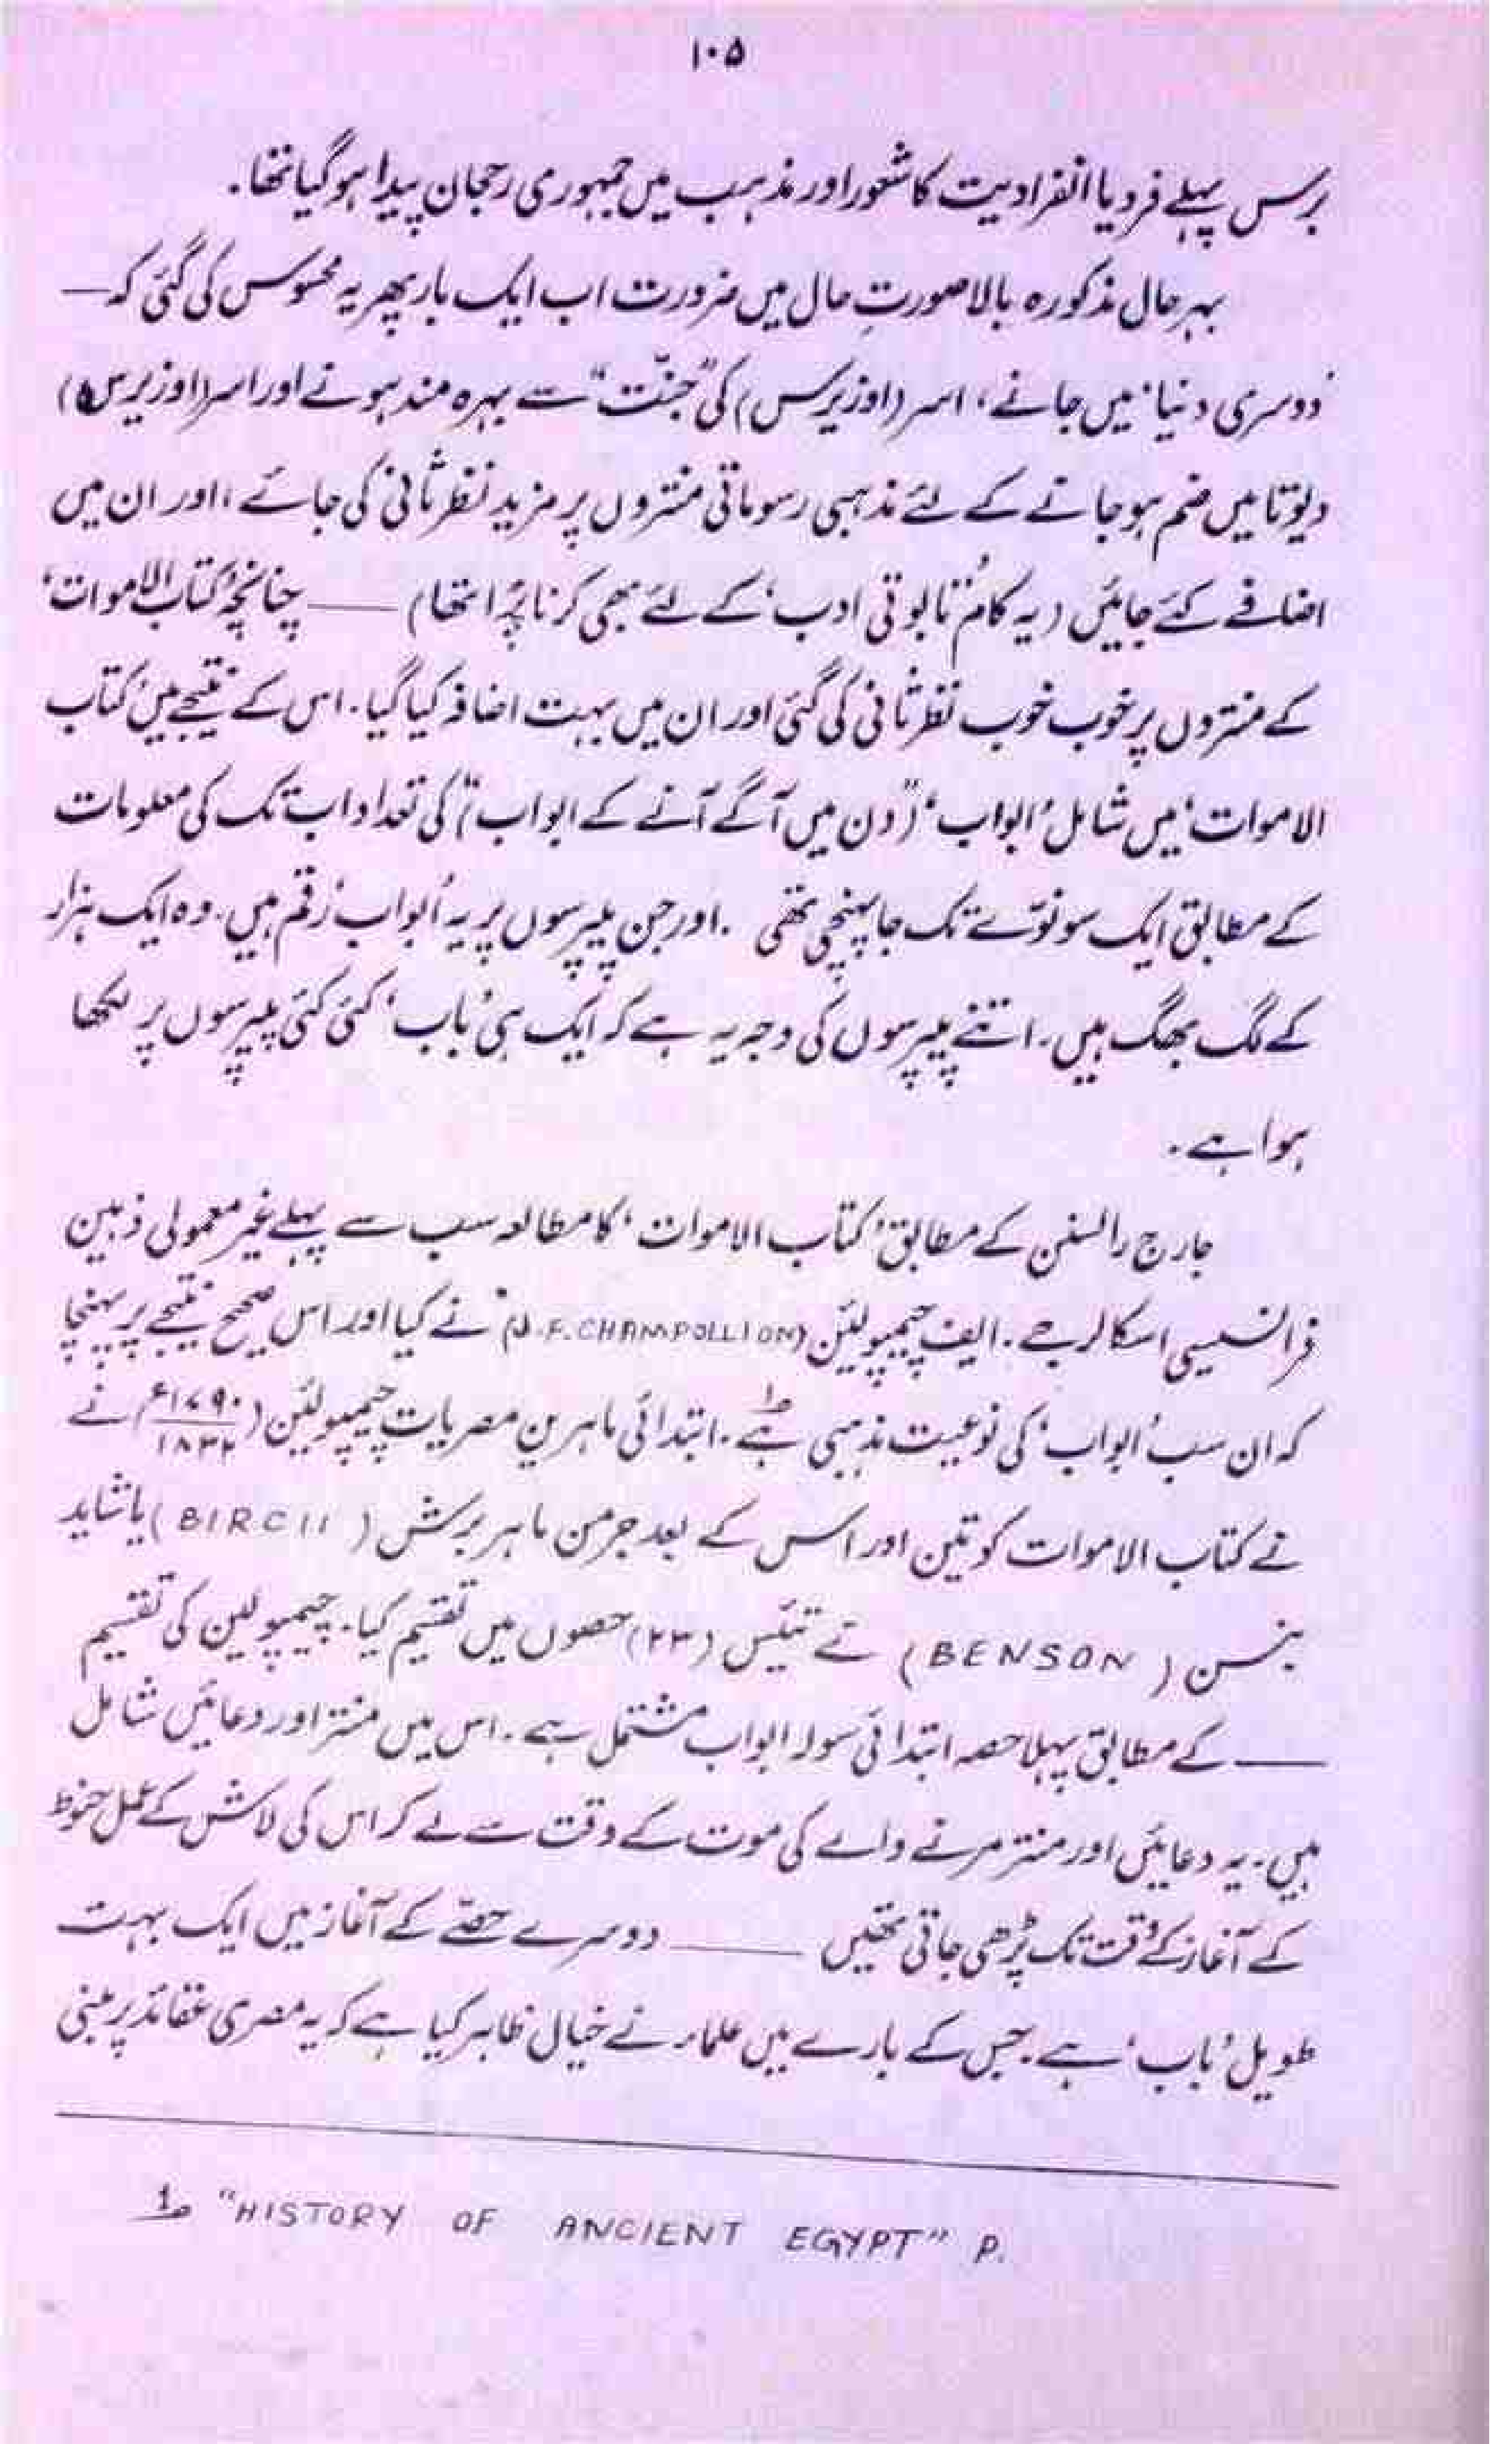 ۱۰۵
برس پہلے فرد یا انفرادیت کا شعور اور مذہب میں جمہوری رحجان پیدا ہو گیا تھا۔
بہر حال مذکورہ بالا صورتِ حال میں ضرورت اب ایک بار پھر یہ محسوس کی گئی کہ —
'دوسری دنیا' میں جانے، اسر (اوزیرس) کی "جنّت" سے بہرہ مند ہونے اور اسر (اوزیرس)
دیوتا میں ضم ہو جانے کے لئے مذہبی رسوماتی منتروں پر مزید نظر ثانی کی جائے، اور ان میں
اضافے کئے جائیں (یہ کام 'تابوتی ادب' کے لئے بھی کرنا پڑا تھا) —— چنانچہ 'کتاب الاموات'
کے منتروں پر خوب خوب نظر ثانی کی گئی اور ان میں بہت اضافہ کیا گیا۔ اس کے نتیجے میں 'کتاب
الاموات' میں شامل 'ابواب' ("دن میں آگے آنے کے ابواب") کی تعداد اب تک کی معلومات
کے مطابق ایک سو نوّے تک جا پہنچی تھی ۔ اور جن پیپرسوں پر یہ 'ابواب' رقم ہیں۔ وہ ایک ہزار
کے لگ بھگ ہیں۔ اتنے پیپرسوں کی وجہ یہ ہے کہ ایک ہی 'باب' کئی کئی پیپرسوں پر لکھا
ہوا ہے۔
جارج رالسنن کے مطابق 'کتاب الاموات' کا مطالعہ سب سے پہلے غیر معمولی ذہین
فرانسیسی اسکالر جے۔ ایف چیمپولیئن (J.F. CHAMPOLLION) نے کیا اور اس صحیح نتیجے پر پہنچا
کہ ان سب 'ابواب' کی نوعیت مذہبی ہے۔ ؁۱ ابتدائی ماہرینِ مصریات چیمپولیئن (۱۷۹۰ء / ۱۸۳۲) نے
نے کتاب الاموات کو تین اور اس کے بعد جرمن ماہر برش (BIRCH) یا شاید
بنسن (BENSON) نے تیئیس (۲۳) حصوں میں تقسیم کیا۔ چیمپولین کی تقسیم
—— کے مطابق پہلا حصہ ابتدائی سولہ ابواب مشتمل ہے۔ اس میں منتر اور دعائیں شامل
ہیں۔ یہ دعائیں اور منتر مرنے والے کی موت کے وقت سے لے کر اس کی لاش کے عمل حنوط
کے آغاز کے وقت تک پڑھی جاتی تھیں —— دوسرے حصّے کے آغاز میں ایک بہت
طویل 'باب' ہے۔ جس کے بارے میں علماء نے خیال ظاہر کیا ہے کہ یہ مصری عقائد پر مبنی
؁1 "HISTORY OF ANCIENT EGYPT" P.